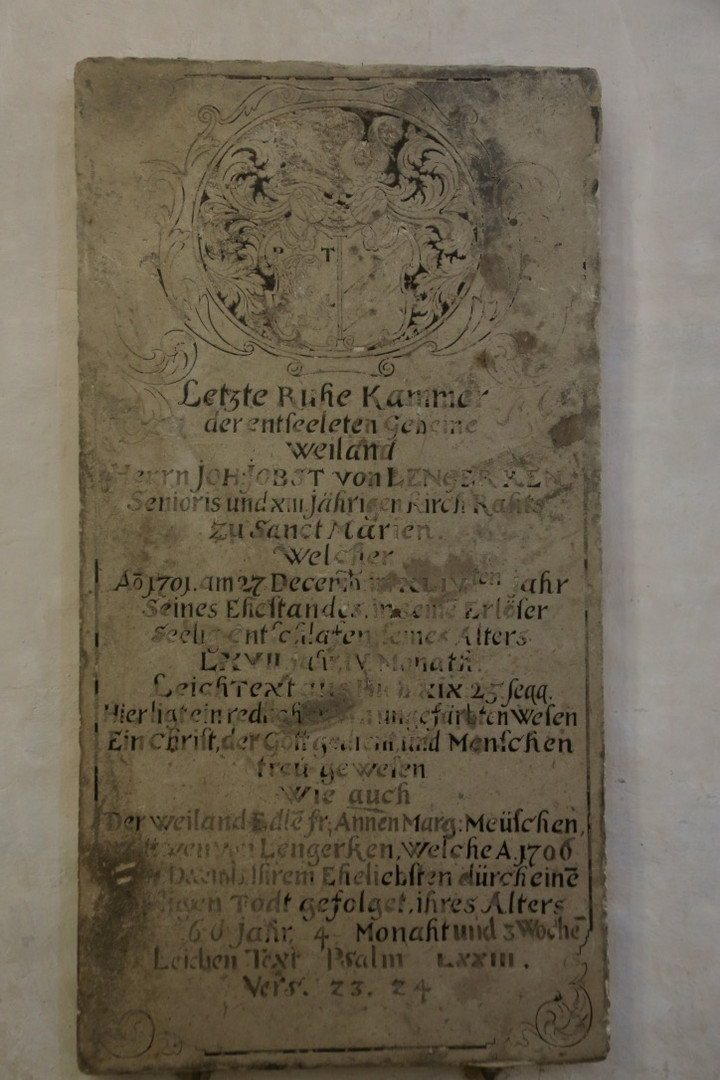 T
Letzte Ruhe Kammer
der entseeleten Gebeine
weiland
Herrn JOH: JOBST von LENGERKEN
Senioris und XIII Jährigen Kirch Rahts
zu Sanct Marien.
Welcher
Ao 1701. am 27 Decemb im XLIVten Jahr
Seines Ehestandes, in seine Erlöser
Seelig entschlafen seines Alters
LXVII Jahr, IV Monath.
LeichText aus Hiob XIX 25 seqq.
Hier ligt ein redlich ungefärbten Wesen
Ein Christ, der Gott gedient und Menschen
treu gewesen
Wie auch
Der weiland Edlē fr, Annen Marg: Meüschen,
von Lengerken, Welche A. 1706
Ihrem Ehelichsten dürch einē
Todt gefolget, ihres Alters
60 Jahr, 4 Monaht und 3 Wochē
Leichen Text Psalm LXXIII.
Vers. 23. 24